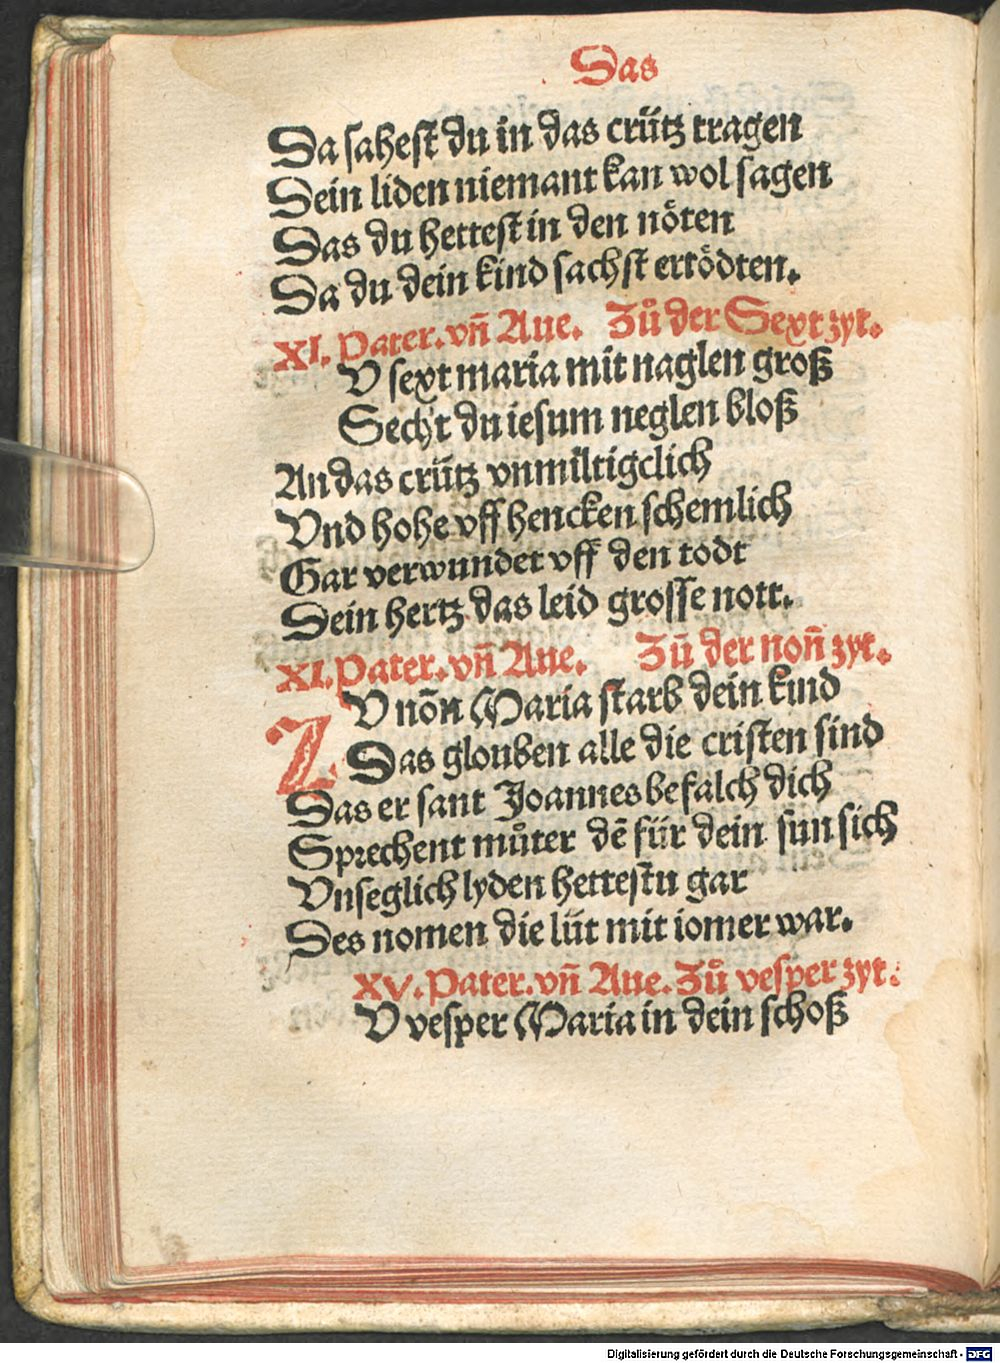 Das
Da sahest du in das crütz tragen
Dein liden niemant kan wol sagen
Das du hettest in den nöten
Da du dein kind sachst ertödten.
XI. Pater. vn̄ Aue. Zů der Sext zyt.
V sext maria mit naglen groß
Sech't du iesum neglen bloß
An das crütz vnmiltigclich
Vnd hohe vff hencken schemlich
Gar verwundet vff den todt
Dein hertz das leid grosse nott.
XI. Pater. vn̄ Aue. Zů der non̄ zyt.
Z V nōn Maria starb dein kind
Das glouben alle die cristen sind
Das er sant Joannes befalch dich
Sprechent můter dē für dein sun sich
Vnseglich lyden hettestu gar
Des nomen die lüt mit iomer war.
XV. Pater. vn̄ Aue. Zů vesper zyt.
V vesper Maria in dein schoß
Digitalisierung gefördert durch die Deutsche Forschungsgemeinschaft - DFG